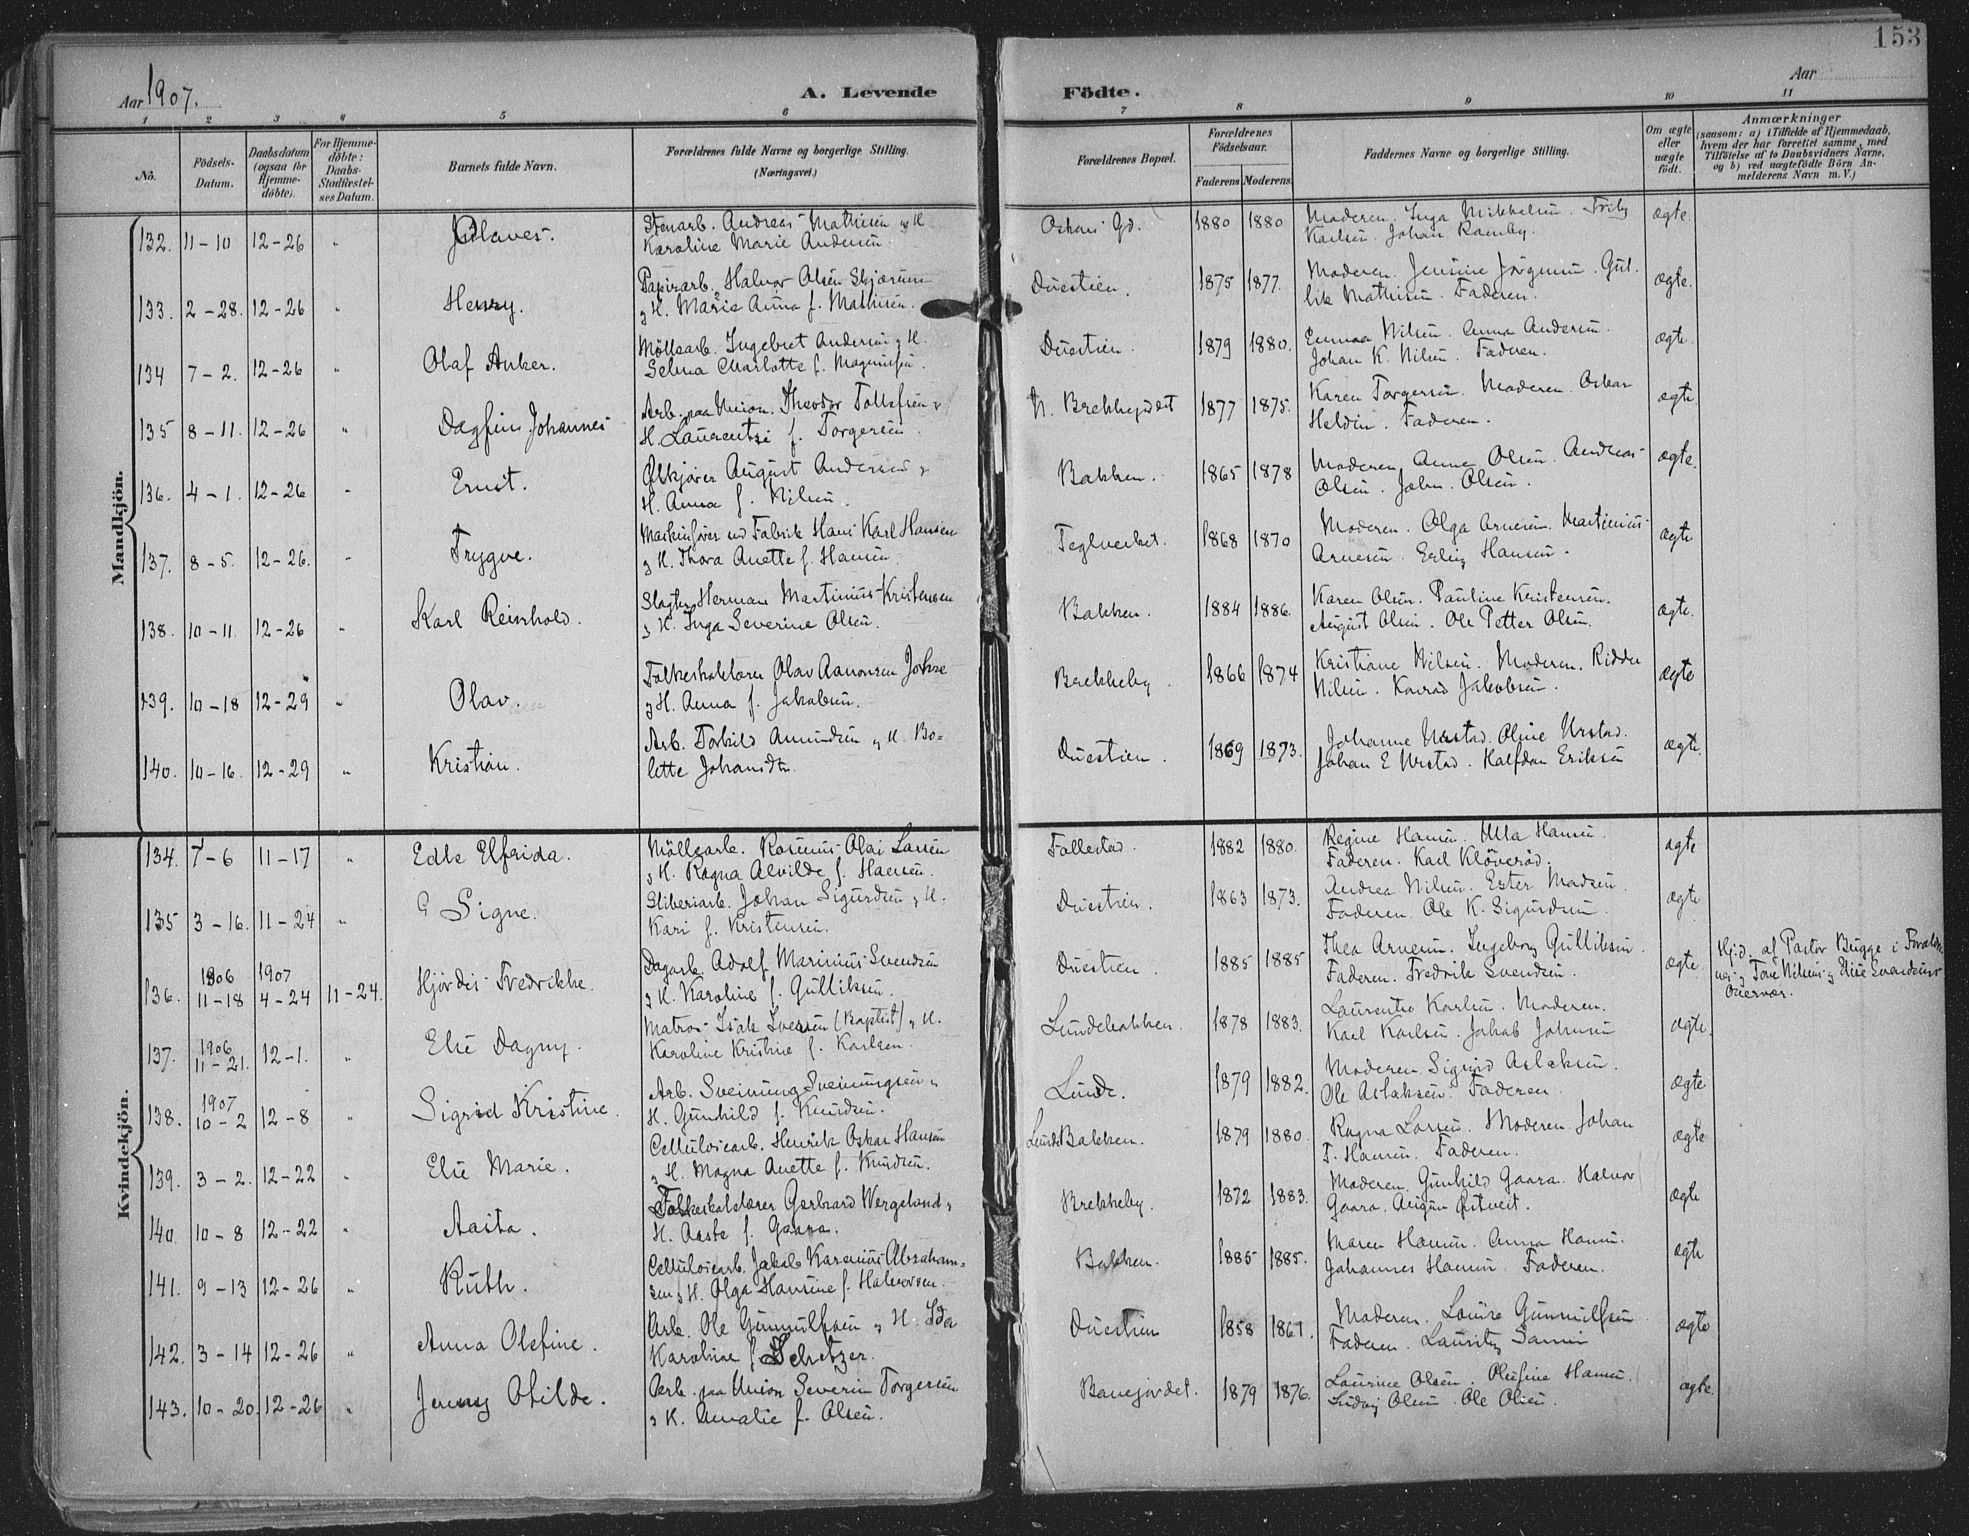 153
Aar 1907.
A. Levende Födte.
Aar
1 2 3 4 5 6 7 8 9 10 11
No.
Födsels-Datum.
Daabsdatum (ogsaa for Hjemme-döbte).
For Hjemme-döbte: Daabs-Stadfæstel-ses Datum.
Barnets fulde Navn.
Forældrenes fulde Navne og borgerlige Stilling. (Næringsvei.)
Forældrenes Bopæl.
Forældrenes Födselsaar.
Faderens Moderens
Faddernes Navne og borgerlige Stilling.
Om ægte eller uægte födt.
Anmærkninger (saasom: a) i Tilfælde af Hjemmedaab, hvem der har forrettet samme, med Tilföielse af to Daabsvidners Navne, og b) ved uægtefödte Börn An-melderens Navn m. V.)
Mandkjön.
132. 11-10 12-26 " Stenarb. Andreas Mathisen og H. Karoline Marie Andersen. 1880 1880 Moderen. Inga Mikkelsen. Karlsen. Johan ægte.
133. 2-28. 12-26 " Henry. Papirarb. Halvor Olsen Skjærum og H. Marie Anna f. Mathisen. Duestien. 1875 1877. Moderen. Jensine Jörgensen. Gul-lik Mathisen. Faderen. ægte.
134 7-2. 12-26 " Olaf Anker. Möllearb. Ingebret Andersen og H. Selma Charlotte f. Magnussen. Duestien. 1879 1880. Emma Nilsen. Anna Andersen. Johan K. Nilsen. Faderen. ægte.
135 8-11. 12-26 " Dagfin Johannes Arb. paa Union. Theodor Tollefsen og H. Laurentze f. Torgersen. N. Brekkejordet 1877 1875. Karen Torgersen. Moderen. Oskar Heldin. Faderen. ægte
136. 4-1. 12-26 " Ernst. Ölkjörer August Andersen og H. Anna f. Nilsen. Bakken. 1865 1878 Moderen. Anne Olsen. Andreas Olsen. John Olsen. ægte.
137. 8-5. 12-26. " Trygve. Maskinförer ved Fabrik Hans Karl Hansen og H. Thora Anette f. Hansen. Teglverket. 1868 1870 Moderen. Olga Arnesen. Martinius Arnesen. Erling Hansen. ægte
138. 10-11. 12-26 " Karl Reinhold. Slagter Herman Martinius Kristensen og H. Inga Severine Olsen. Bakken. 1884 1886. Karen Olsen. Pauline Kristensen. August Olsen. Ole Petter Olsen. ægte.
139. 10-18 12-29 " Olav. Folkeskolelærer Olav Aanonsen og H. Anna f. Jakobsen. Brekkeby. 1866 1874 Kristiane Nilsen. Moderen. Nilsen. Konrad Jakobsen. ægte
140. 10-16. 12-29 " Kristian. Arb. Torkild Amundsen og H. Bo-lette Johansdtr. Duestien. 1869 1873. Johanne Urstad. Oline Urstad. Johan E Urstad. Halfdan Eriksen ægte.
Kvindekjön.
134. 7-6 11-17 " Edle Elfrida. Möllearb. Rasmus Olai Larsen og H. Ragna Alvilde f. Hansen. Follestad. 1882 1880. Regine Hansen. Ulla Hansen. Faderen. Karl Klöveröd. ægte
135 3-16. 11-24 " Signe. Sliberiarb. Johan Sigurdsen og H. Kari f. Kristensen. Duestien. 1863 1873. Andrea Nilsen. Ester Madsen. Faderen. Ole K. Sigurdsen. ægte
136. 1906 11-18 1907 4-24 11-24. Hjördis Fredrikke. Dagarb. Adolf Marinius Svendsen og H. Karoline f. Gulliksen. Duestien. 1885 1885 Thea Arnesen. Ingeborg Gulliksen. Faderen. Fredrik Svendsen. ægte. Hjd. af Pastor Bugge i
137. 1906 11-21. 12-1. " Else Dagny. Matros Isak Iversen (Baptist) og H. Karoline Kristine f. Karlsen. Lundebakken. 1878 1883. Laurentze Karlsen. Moderen. Karl Karlsen. Jakob Johnsen ægte.
138. 1907 10-2 12-8 " Sigrid Kristine. Arb. Sveinung Sveinungsen og H. Gunhild f. Knudsen. Lunde. 1879 1882. Moderen. Sigrid Aslaksen. Ole Aslaksen. Faderen. ægte
139. 3-2. 12-22 " Else Marie. Cellulosearb. Henrik Oskar Hansen og H. Magna Anette f. Knudsen. Lunde Bakken. 1879 1880. Ragna Larsen. Moderen. Johan T. Hansen. Faderen. ægte
140. 10-8 12-22 " Aasta. Folkeskolelærer Gerhard Wergeland og H. Aaste f. Gaara. Brekkeby. 1872 1883. Moderen. Gunhild Gaara. Halvor Gaara. Östveit. ægte
141. 9-13 12-26 " Ruth. Cellulosearb. Jakob Karenius Abraham-sen og H. Olga Hansine f. Halvorsen. Bakken. 1885 1885. Maren Hansen. Anna Hansen. Johannes Hansen Faderen. ægte
142. 3-14 12-26 " Anna Olefine. Arb. Ole Gunnulfsen og H. Ida Karoline f. Schetzer. Duestien 1858 1861. Moderen. Louise Gunnulfsen Faderen. Lauritz ægte
143. 10-20. 12-26 " Jenny Otilde. Arb. paa Union Severin Torgersen og H. Amalie f. Olsen. Banejordet. 1879 1876. Laurine Olsen. Olefine Hansen. Ludvig Olsen. Ole Olsen. ægte.